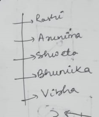 → Ratri
→ Anumina
→ Shweta
→ Bhumika
→ Vibha